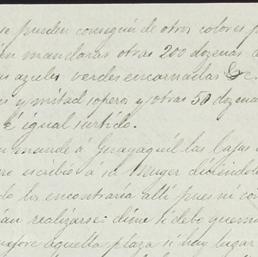 se pueden conseguir de otros colores p
en mandaras otras 200 dozenas d
s azules verdes encarnadas &c.
es y mitad soperos y otras 50 dozena
é igual surtido.
n mandé á Guayaquil las Cajas
re escribió á su Muger diciendole
do las encontraria allí pues ni con
an realizarse: dime si debo quemar
mejore aquella plaza si hay lugar